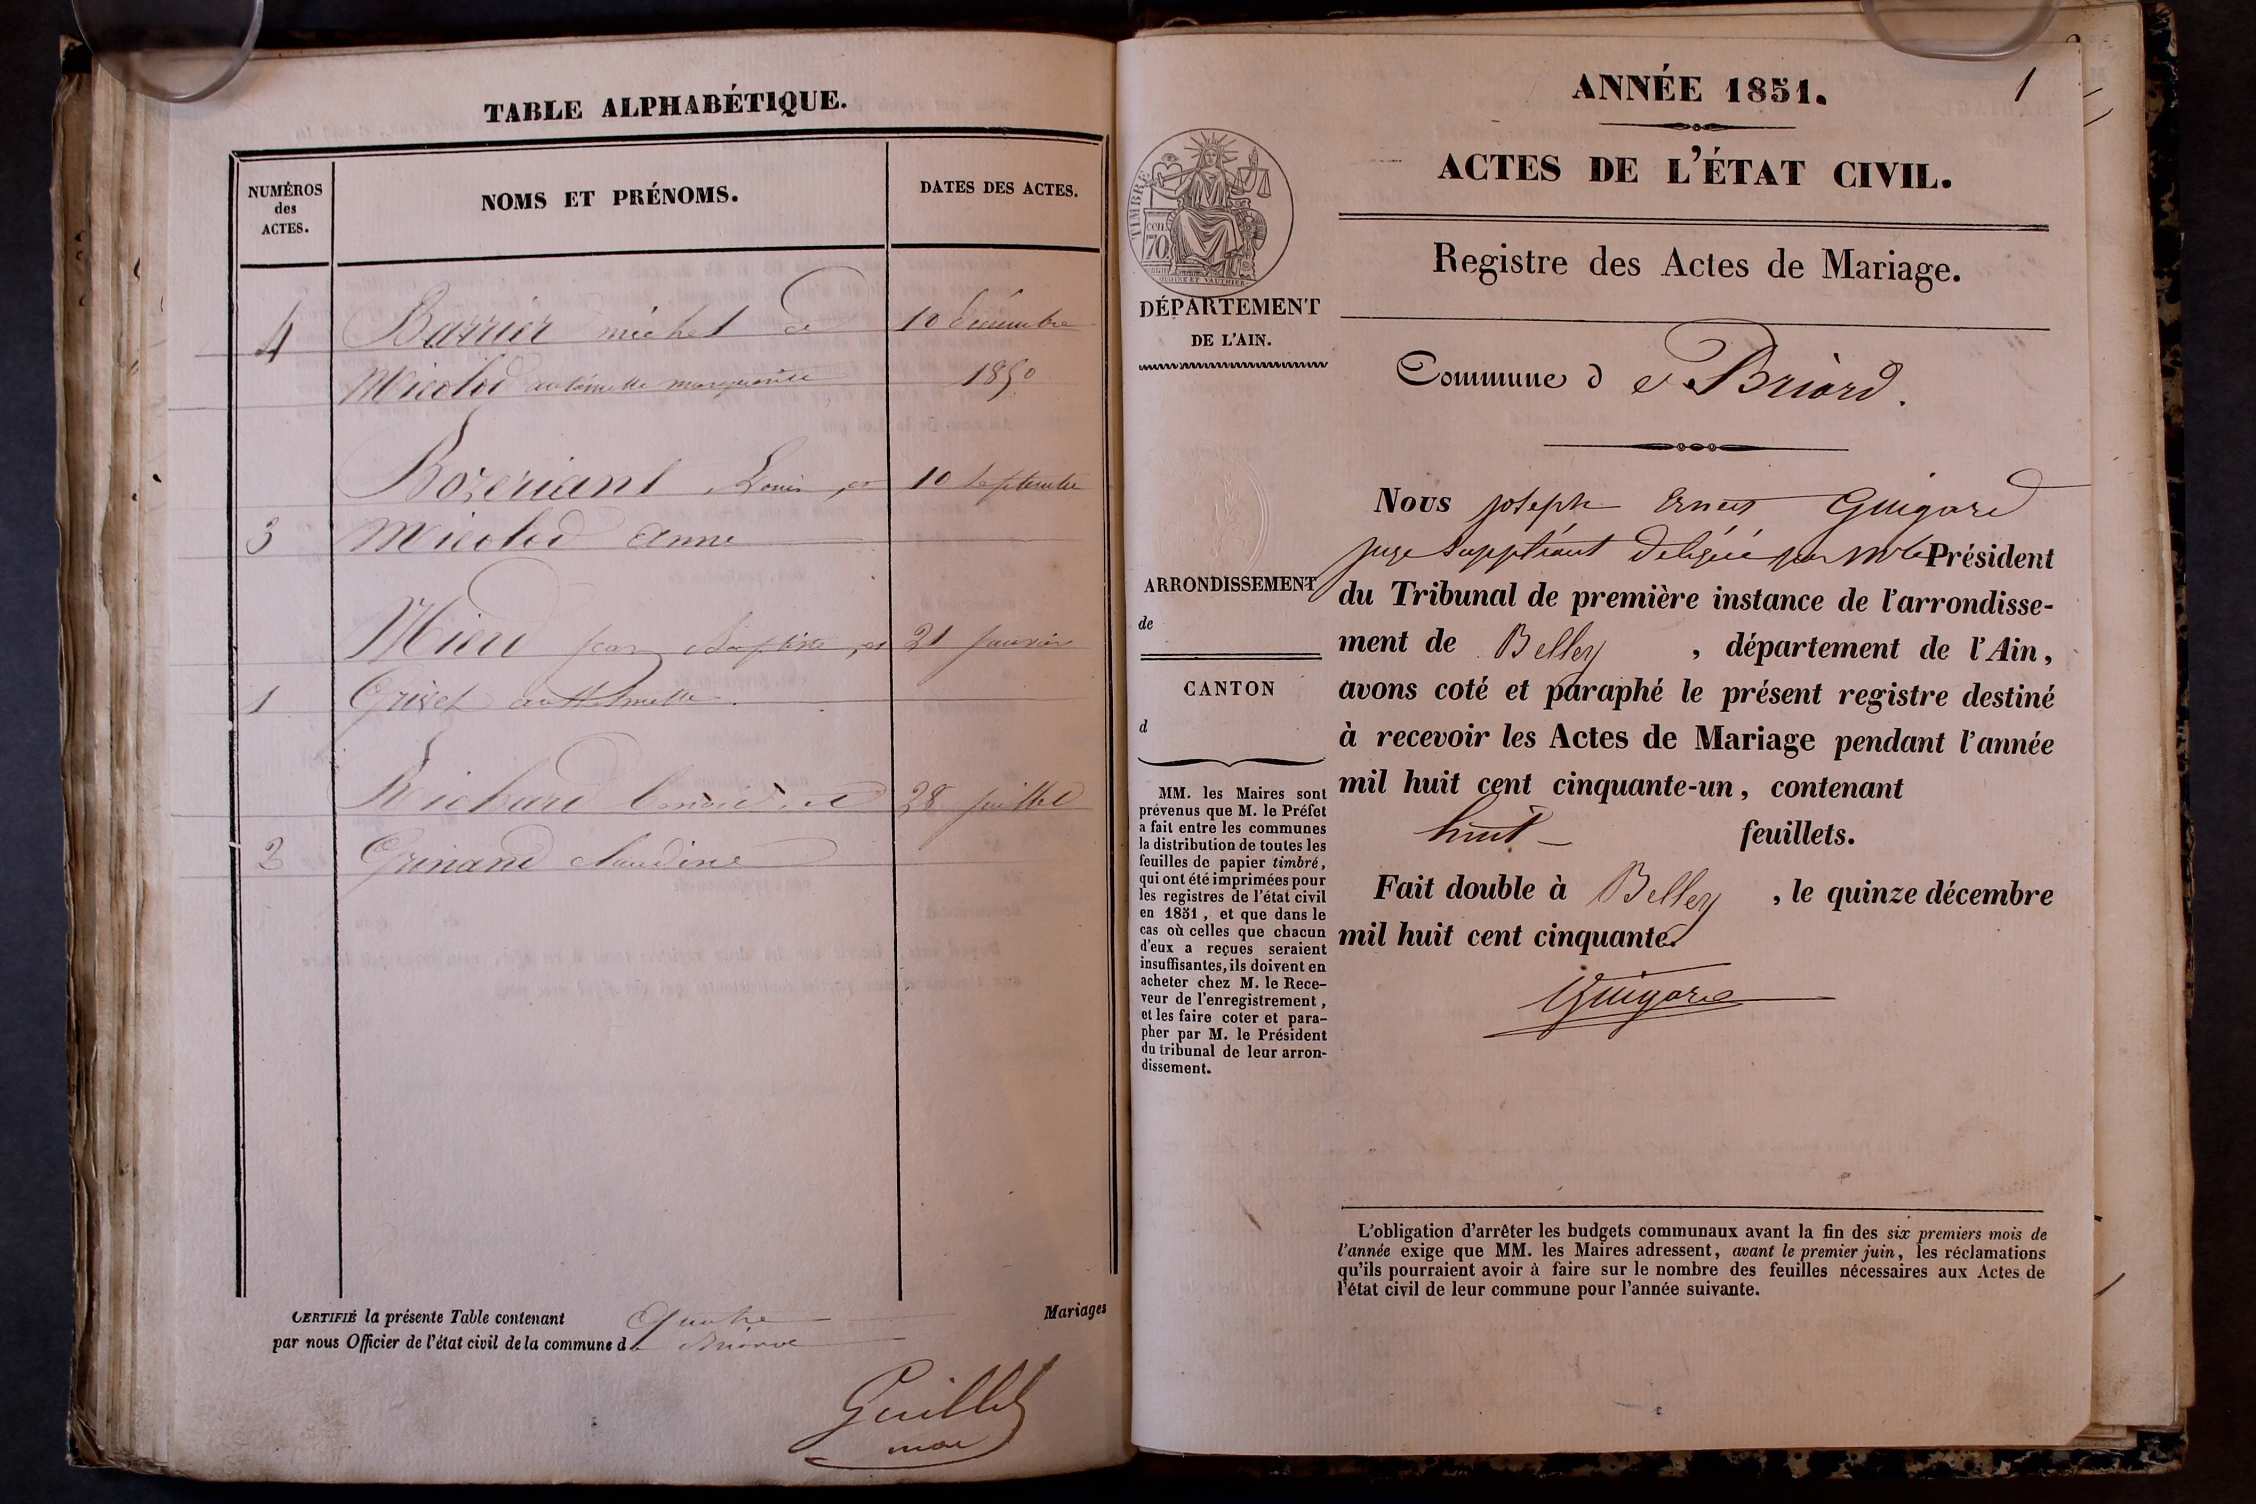 TABLE ALPHABÉTIQUE.
NUMÉROS
des
ACTES.
NOMS ET PRÉNOMS.
DATES DES ACTES.
4 Barrier michel et 10 décembre
Micolod antoinette marguerite 1850
Bozeriant Louis, et 10 septembre
3 Micolod anne
jean Baptiste, et 21 janvier
1 Grivet anthelmette
Richard benoit, et 28 juillet
2 Grinand claudine
CERTIFIÉ la présente Table contenant Quatre Mariages
par nous Officier de l'état civil de la commune de Briord
Guillet
1
ANNÉE 1851.
ACTES DE L'ÉTAT CIVIL.
TIMBRE
70
DÉPARTEMENT
DE L'AIN.
ARRONDISSEMENT
de
CANTON
d
MM. les Maires sont
prévenus que M. le Préfet
a fait entre les communes
la distribution de toutes les
feuilles de papier timbré,
qui ont été imprimées pour
les registres de l'état civil
en 1851, et que dans le
cas où celles que chacun
d'eux a reçues seraient
insuffisantes, ils doivent en
acheter chez M. le Rece-
veur de l'enregistrement,
et les faire coter et para-
pher par M. le Président
du tribunal de leur arron-
dissement.
Registre des Actes de Mariage.
Commune de Briord.
Nous joseph Ernest Guigard
juge Suppléant délégué par Mr le Président
du Tribunal de première instance de l'arrondisse-
ment de Belley, département de l'Ain,
avons coté et paraphé le présent registre destiné
à recevoir les Actes de Mariage pendant l'année
mil huit cent cinquante-un, contenant
huit feuillets.
Fait double à Belley, le quinze décembre
mil huit cent cinquante.
Guigard
L'obligation d'arrêter les budgets communaux avant la fin des six premiers mois de
l'année exige que MM. les Maires adressent, avant le premier juin, les réclamations
qu'ils pourraient avoir à faire sur le nombre des feuilles nécessaires aux Actes de
l'état civil de leur commune pour l'année suivante.